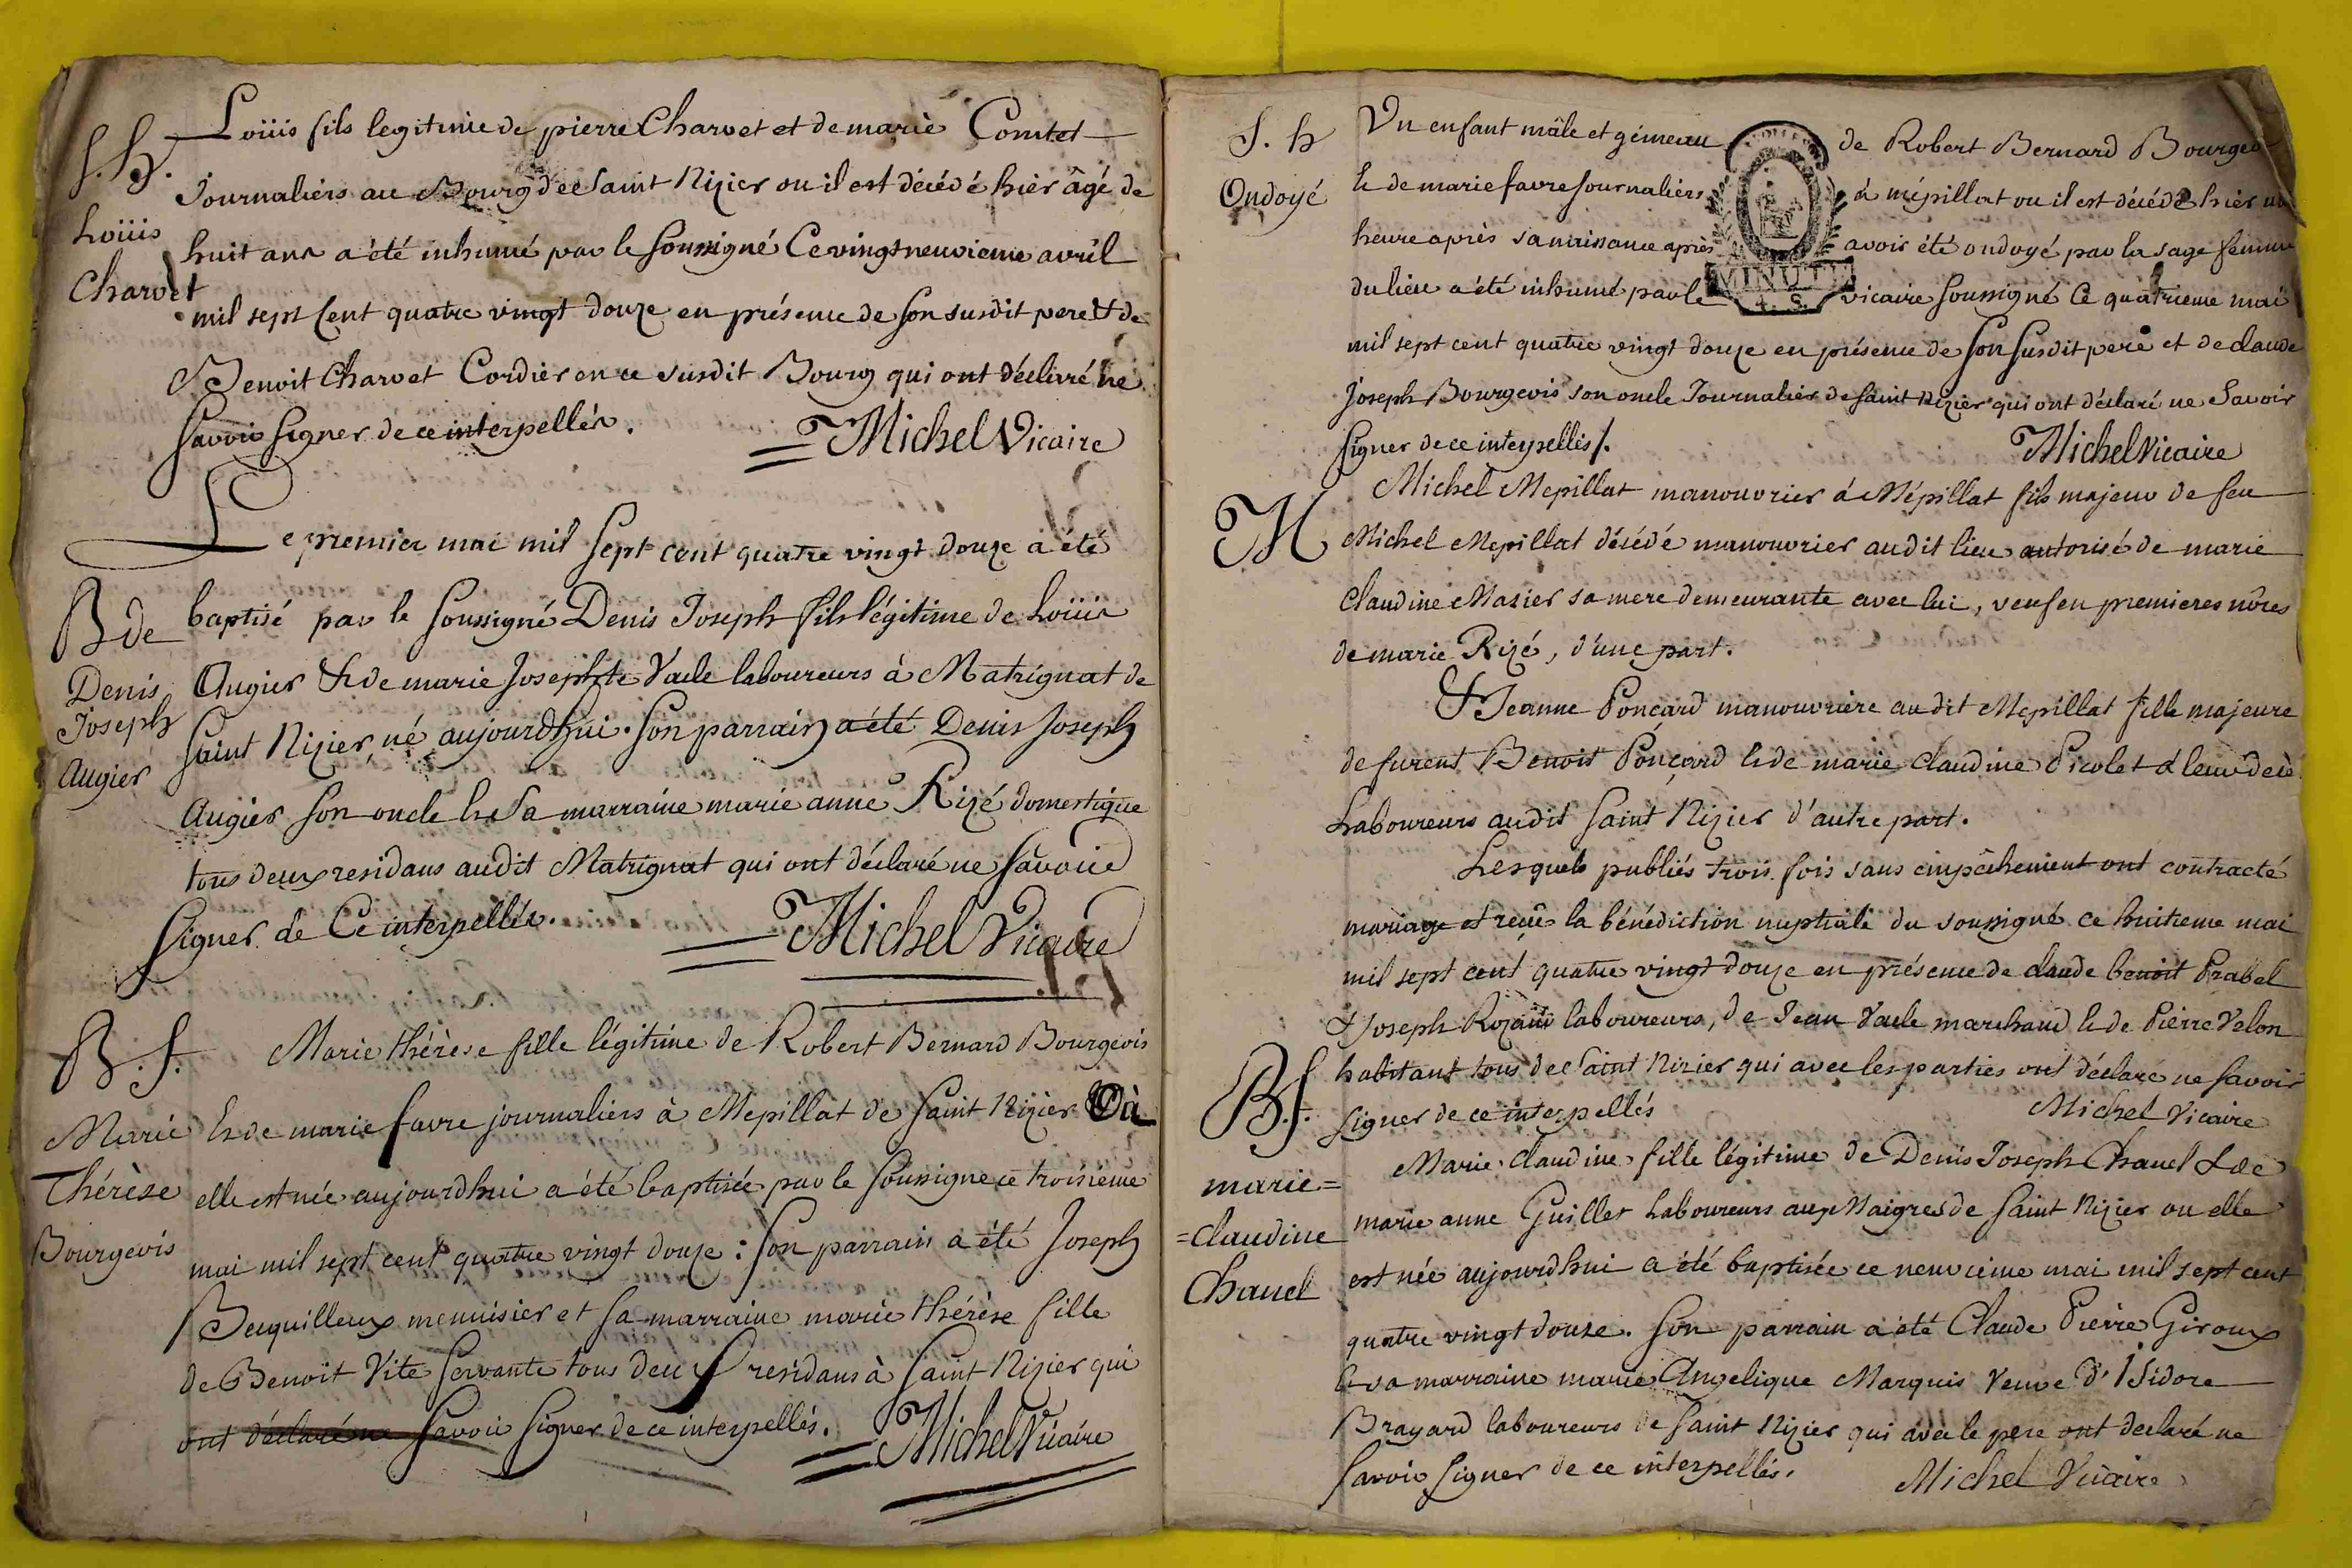 S. h.
Loüis
Charvet
Loüis fils legitime de pierre Charvet et de marie Comtet
Journaliers au Bourg de Saint Nizier ou il est décédé hier âgé de
huit ans a été inhumé par le soussigné Ce vingt neuvieme avril
mil sept Cent quatre vingt douze en présence de son susdit pere & de
Benoit Charvet Cordier en ce susdit Bourg qui ont déclaré ne
savoir signer de ce interpellés.
Michel Vicaire
B de
Denis
Joseph
Augier
Le premier mai mil sept cent quatre vingt douze a été
baptisé par le soussigné Denis Joseph fils légitime de Loüis
Augier & de marie Josephte Vacle laboureurs à Matrignat de
Saint Nizier, né aujourdhui. Son parrain a été Denis Joseph
Augier son oncle & sa marraine marie anne Rizé domestique
tous deux residans audit Matrignat qui ont déclaré ne savoir
signer de Ce interpellés.
Michel Vicaire
B. f.
Marie
Thérèse
Bourgeois
Marie thérèse fille légitime de Robert Bernard Bourgeois
& de marie favre journaliers à Mepillat de Saint Nizier Où
elle est née aujourdhui a été baptisée par le soussigne ce troisieme
mai mil sept cent quatre vingt douze : son parrain a été Joseph
Beuquilleux menuisier et sa marraine marie thérèse fille
de Benoit Vite servante tous deux residans à Saint Nizier qui
ont déclaré ne savoir signer de ce interpellés.
Michel Vicaire
S. h
Ondoyé
Un enfant mâle et gémeau de Robert Bernard Bourgeo
& de marie favre Journaliers à mépillat ou il est décédé hier un
heure après sa naissance après avoir été ondoyé par la sage femme
du lieu a été inhumé par le vicaire soussigné Ce quatrieme mai
MINUTE
4. S.
mil sept cent quatre vingt douze en présence de son susdit pere et de claude
Joseph Bourgeois son oncle Journalier de Saint Nizier qui ont déclaré ne savoir
signer de ce interpellés/.
Michel Vicaire
M
Michel Mepillat manouvrier à Mépillat fils majeur de feu
Michel Mepillat décédé manouvrier audit lieu autorisé de marie
Claudine Masier sa mere demeurante avec lui, veuf en premieres nôces
de marie Rizé, d'une part.
& Jeanne Ponçard manouvriere audit Mepillat fille majeure
de furent Benoit Ponçard & de marie claudine Picolet à leur décè
Laboureurs audit Saint Nizier d'autre part.
Lesquels publiés trois fois sans empêchement ont contracté
mariage et reçu la bénédiction nuptiale du soussigné ce huitieme mai
mil sept cent quatre vingt douze en présence de claude benoit Prabel
& Joseph laboureurs, de Jean Vacle marchand & de Pierre Velon
habitant tous de Saint Nizier qui avec les parties ont déclaré ne savoir
signer de ce interpellés
Michel Vicaire
B. f.
marie=
=claudine
Chanel
Marie claudine fille légitime de Denis Joseph Chanel & de
marie anne Guillet Laboureurs aux Maigres de Saint Nizier ou elle
est née aujourdhui a été baptisée ce neuvieme mai mil sept cent
quatre vingt douze. Son parrain a été Claude Pierre Giroux
& sa marraine marie Angelique Marquis Veuve d'Isidore
Brayard laboureurs de Saint Nizier qui avec le pere ont declaré ne
savoir signer de ce interpellés.
Michel Vicaire